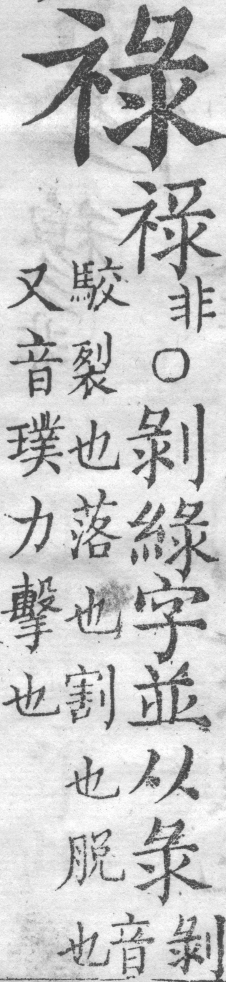 祿
禄非○剝綠字並从彔剝音
駮裂也落也割也脫也
又音璞力擊也